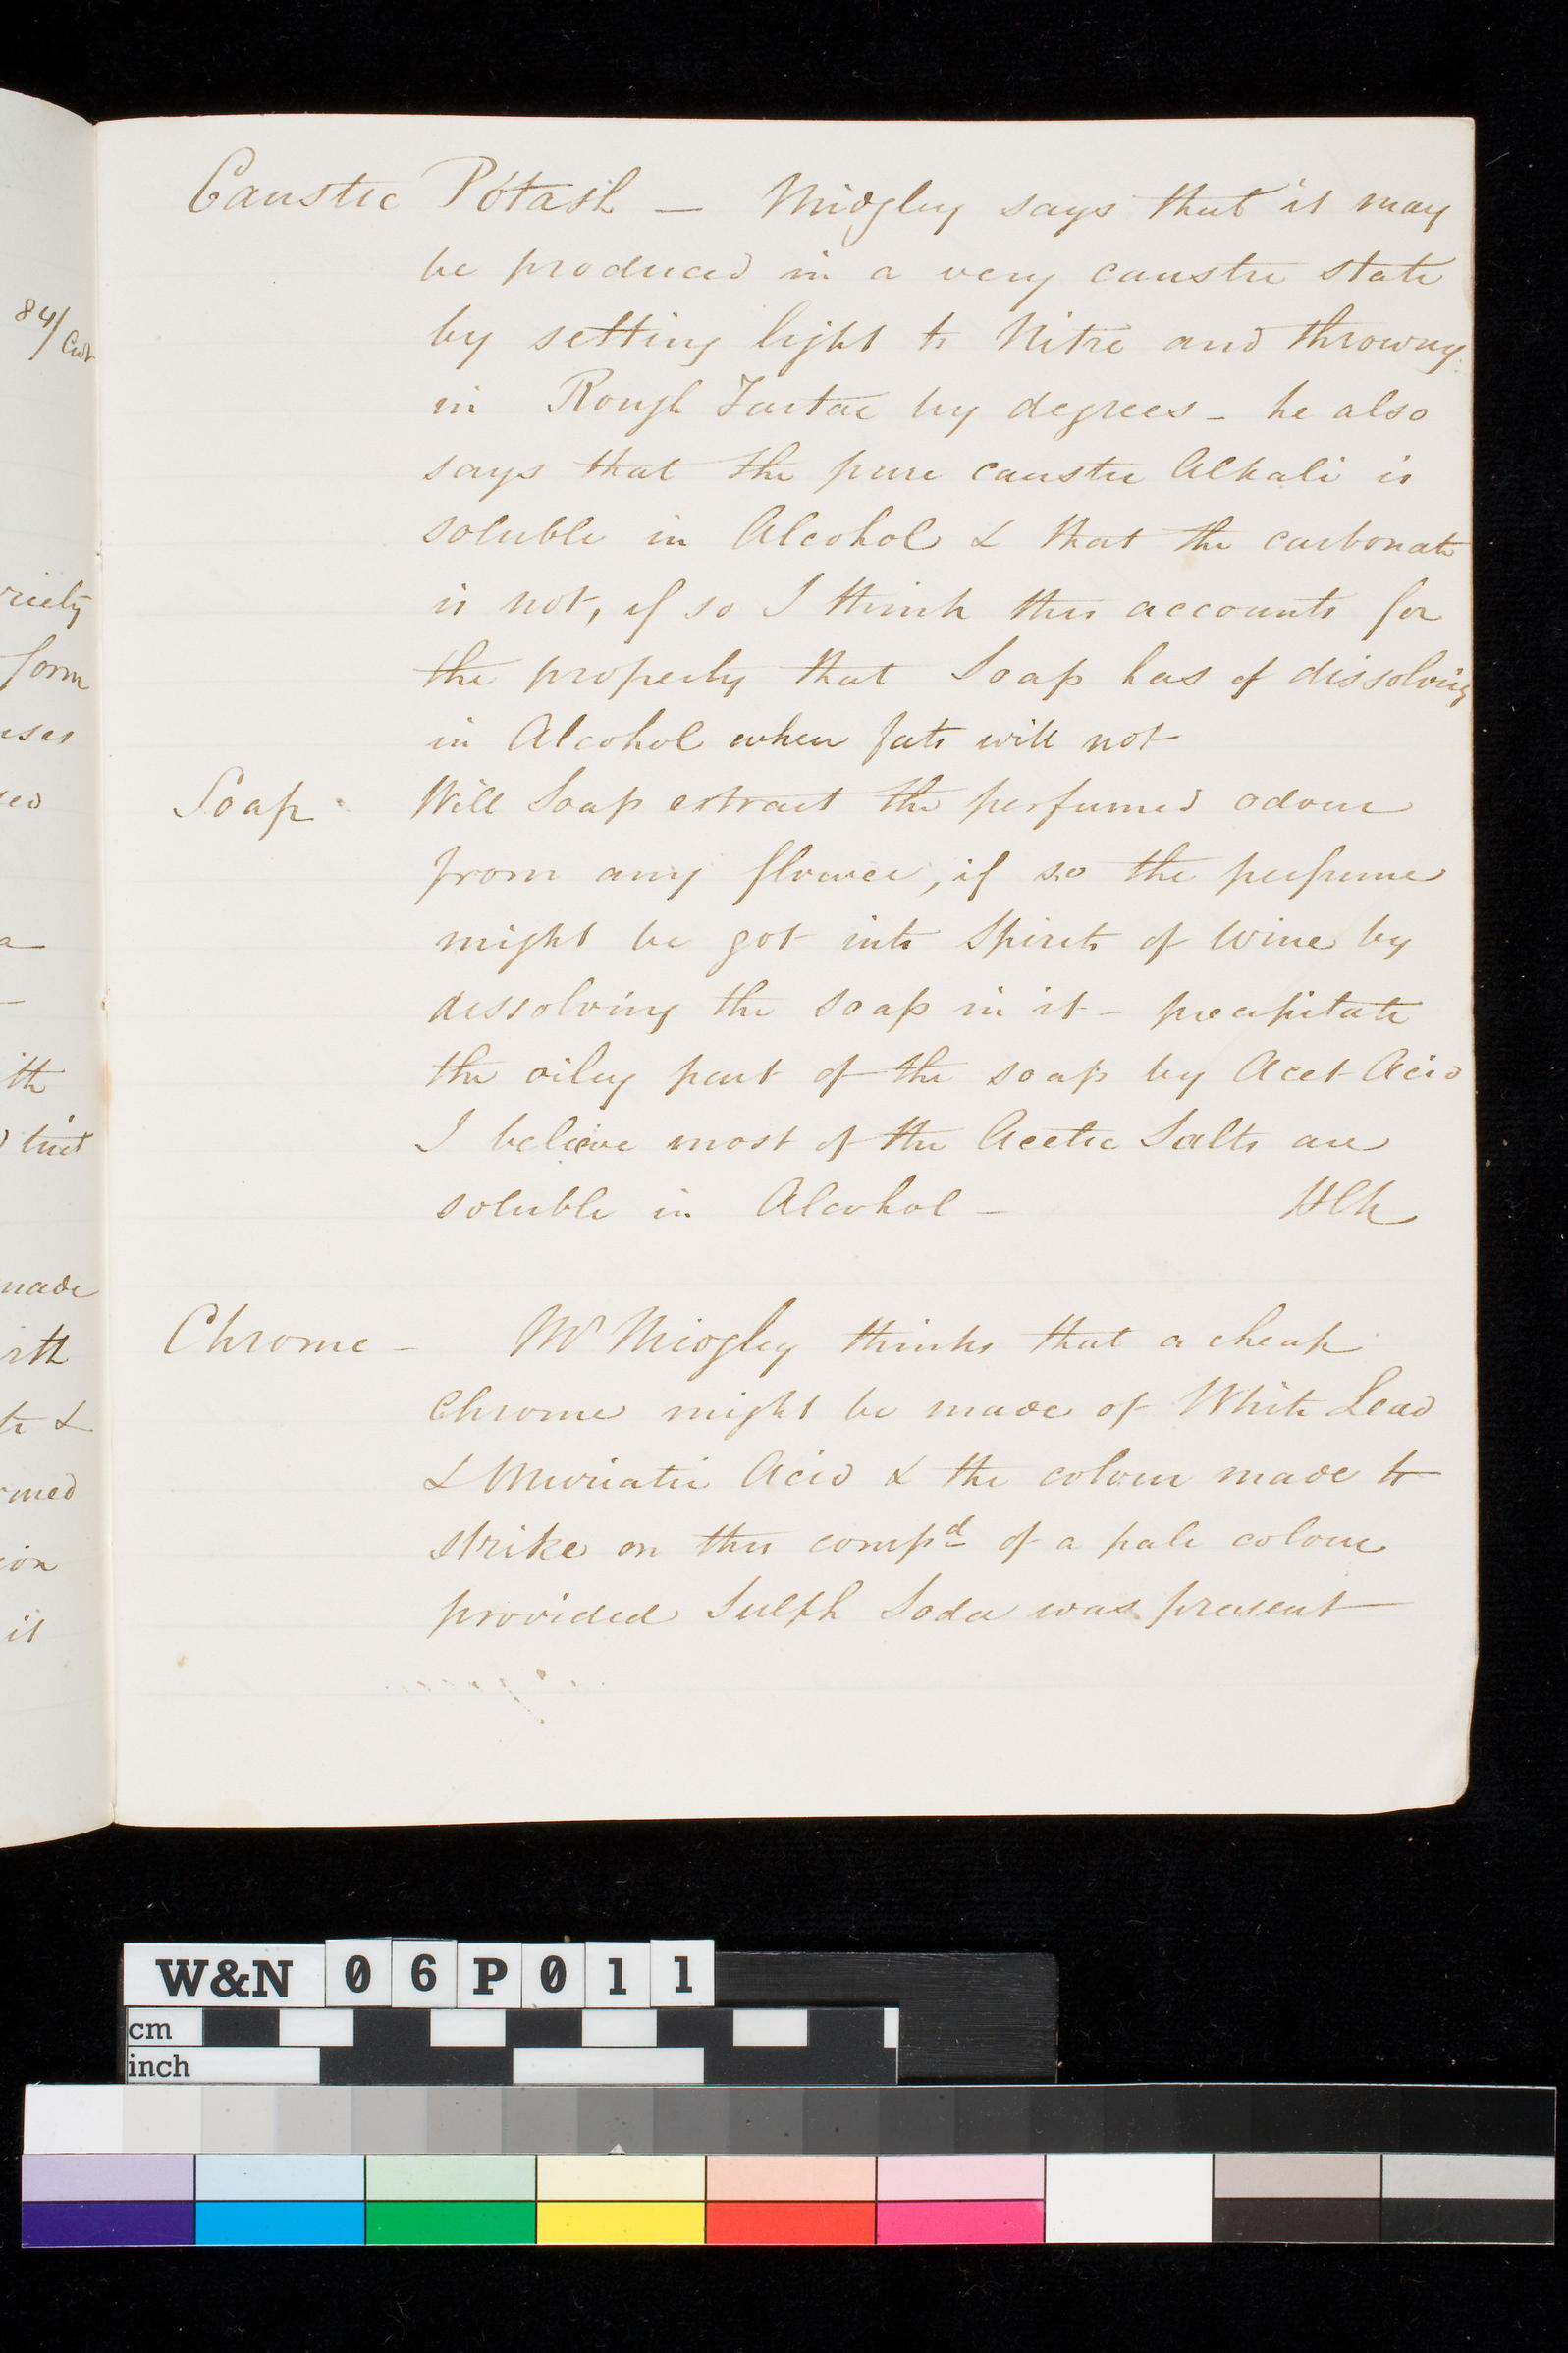 84/Cwt
riety
form
uses
a
ith
tint
made
ith
&
ion
it
Caustic Potash — Midgley says that it may
be produced in a very caustic state
by setting light to Nitre and throwing
in Rough Tartar by degrees - he also
says that the pure caustic Alkali is
soluble in Alcohol & that the carbonate
is not, if so I think this accounts for
the property that Soap has of dissolving
in Alcohol when fats will not
Soap Will Soap extract the perfumed odour
from any flower, if so the perfume
might be got into Spirits of Wine by
dissolving the soap in it - precipitate
the oiley part of the soap by Acet Acid
I believe most of the Acetic Salts are
soluble in Alcohol -
Chrome - Mr Midgley thinks that a cheap
Chrome might be made of White Lead
& Muriatic Acid & the colour made to
strike on this compd of a pale colour
provided Sulph Soda was present
W&N 06P011
cm
inch